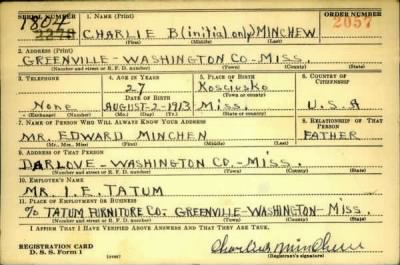 SERIAL NUMBER
1. NAME (Print)
ORDER NUMBER
1804
2278
CHARLIE B (initial only) MINCHEW
2057
(First) (Middle) (Last)
2. ADDRESS (Print)
GREENVILLE - WASHINGTON CO - MISS.
(Number and street or R. F. D. number) (Town) (County) (State)
3. TELEPHONE
4. AGE IN YEARS
5. PLACE OF BIRTH
6. COUNTRY OF CITIZENSHIP
27
Kosciusko
DATE OF BIRTH
(Town) (County)
None
AUGUST-2-1913
Miss.
U.S.A
(Exchange) (Number)
(Mo.) (Day) (Yr.)
(State or country)
7. NAME OF PERSON WHO WILL ALWAYS KNOW YOUR ADDRESS
8. RELATIONSHIP OF THAT PERSON
MR. EDWARD MINCHEN
FATHER
(Mr., Mrs., Miss) (First) (Middle) (Last)
9. ADDRESS OF THAT PERSON
DARLOVE - WASHINGTON CO. - MISS.
(Number and street or R. F. D. number) (Town) (County) (State)
10. EMPLOYER'S NAME
MR. I. E. TATUM
11. PLACE OF EMPLOYMENT OR BUSINESS
% TATUM FURNITURE CO. GREENVILLE - WASHINGTON - MISS.
(Number and street or R. F. D. number) (Town) (County) (State)
I AFFIRM THAT I HAVE VERIFIED ABOVE ANSWERS AND THAT THEY ARE TRUE.
REGISTRATION CARD
D. S. S. Form 1
(over)
Charlie B Minchew
(Registrant's signature)